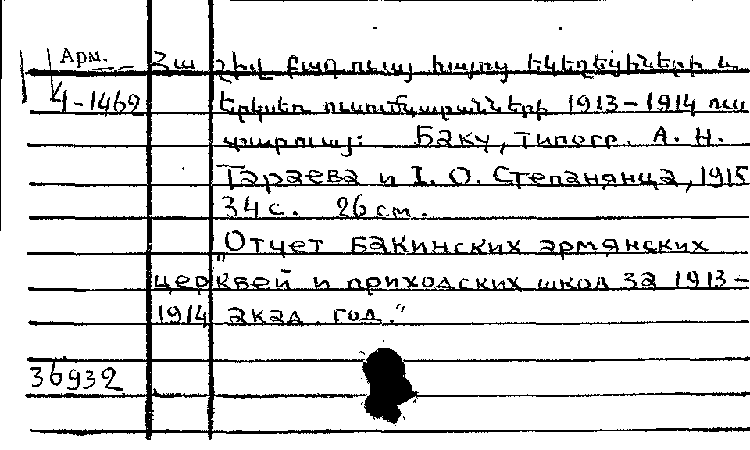 Арм. Հա շիւ Բագ ուայ հայոց եկեղեցիների և
4-1462 երկսեռ ուսումնարանների 1913-1914 ուս
տարուայ: Баку, типогр. А. Н.
Тараева и І. О. Степанянца, 1915
34 с. 26 см.
"Отчет Бакинских армянских
церквей и приходских школ за 1913-
1914 акад. год."
36932